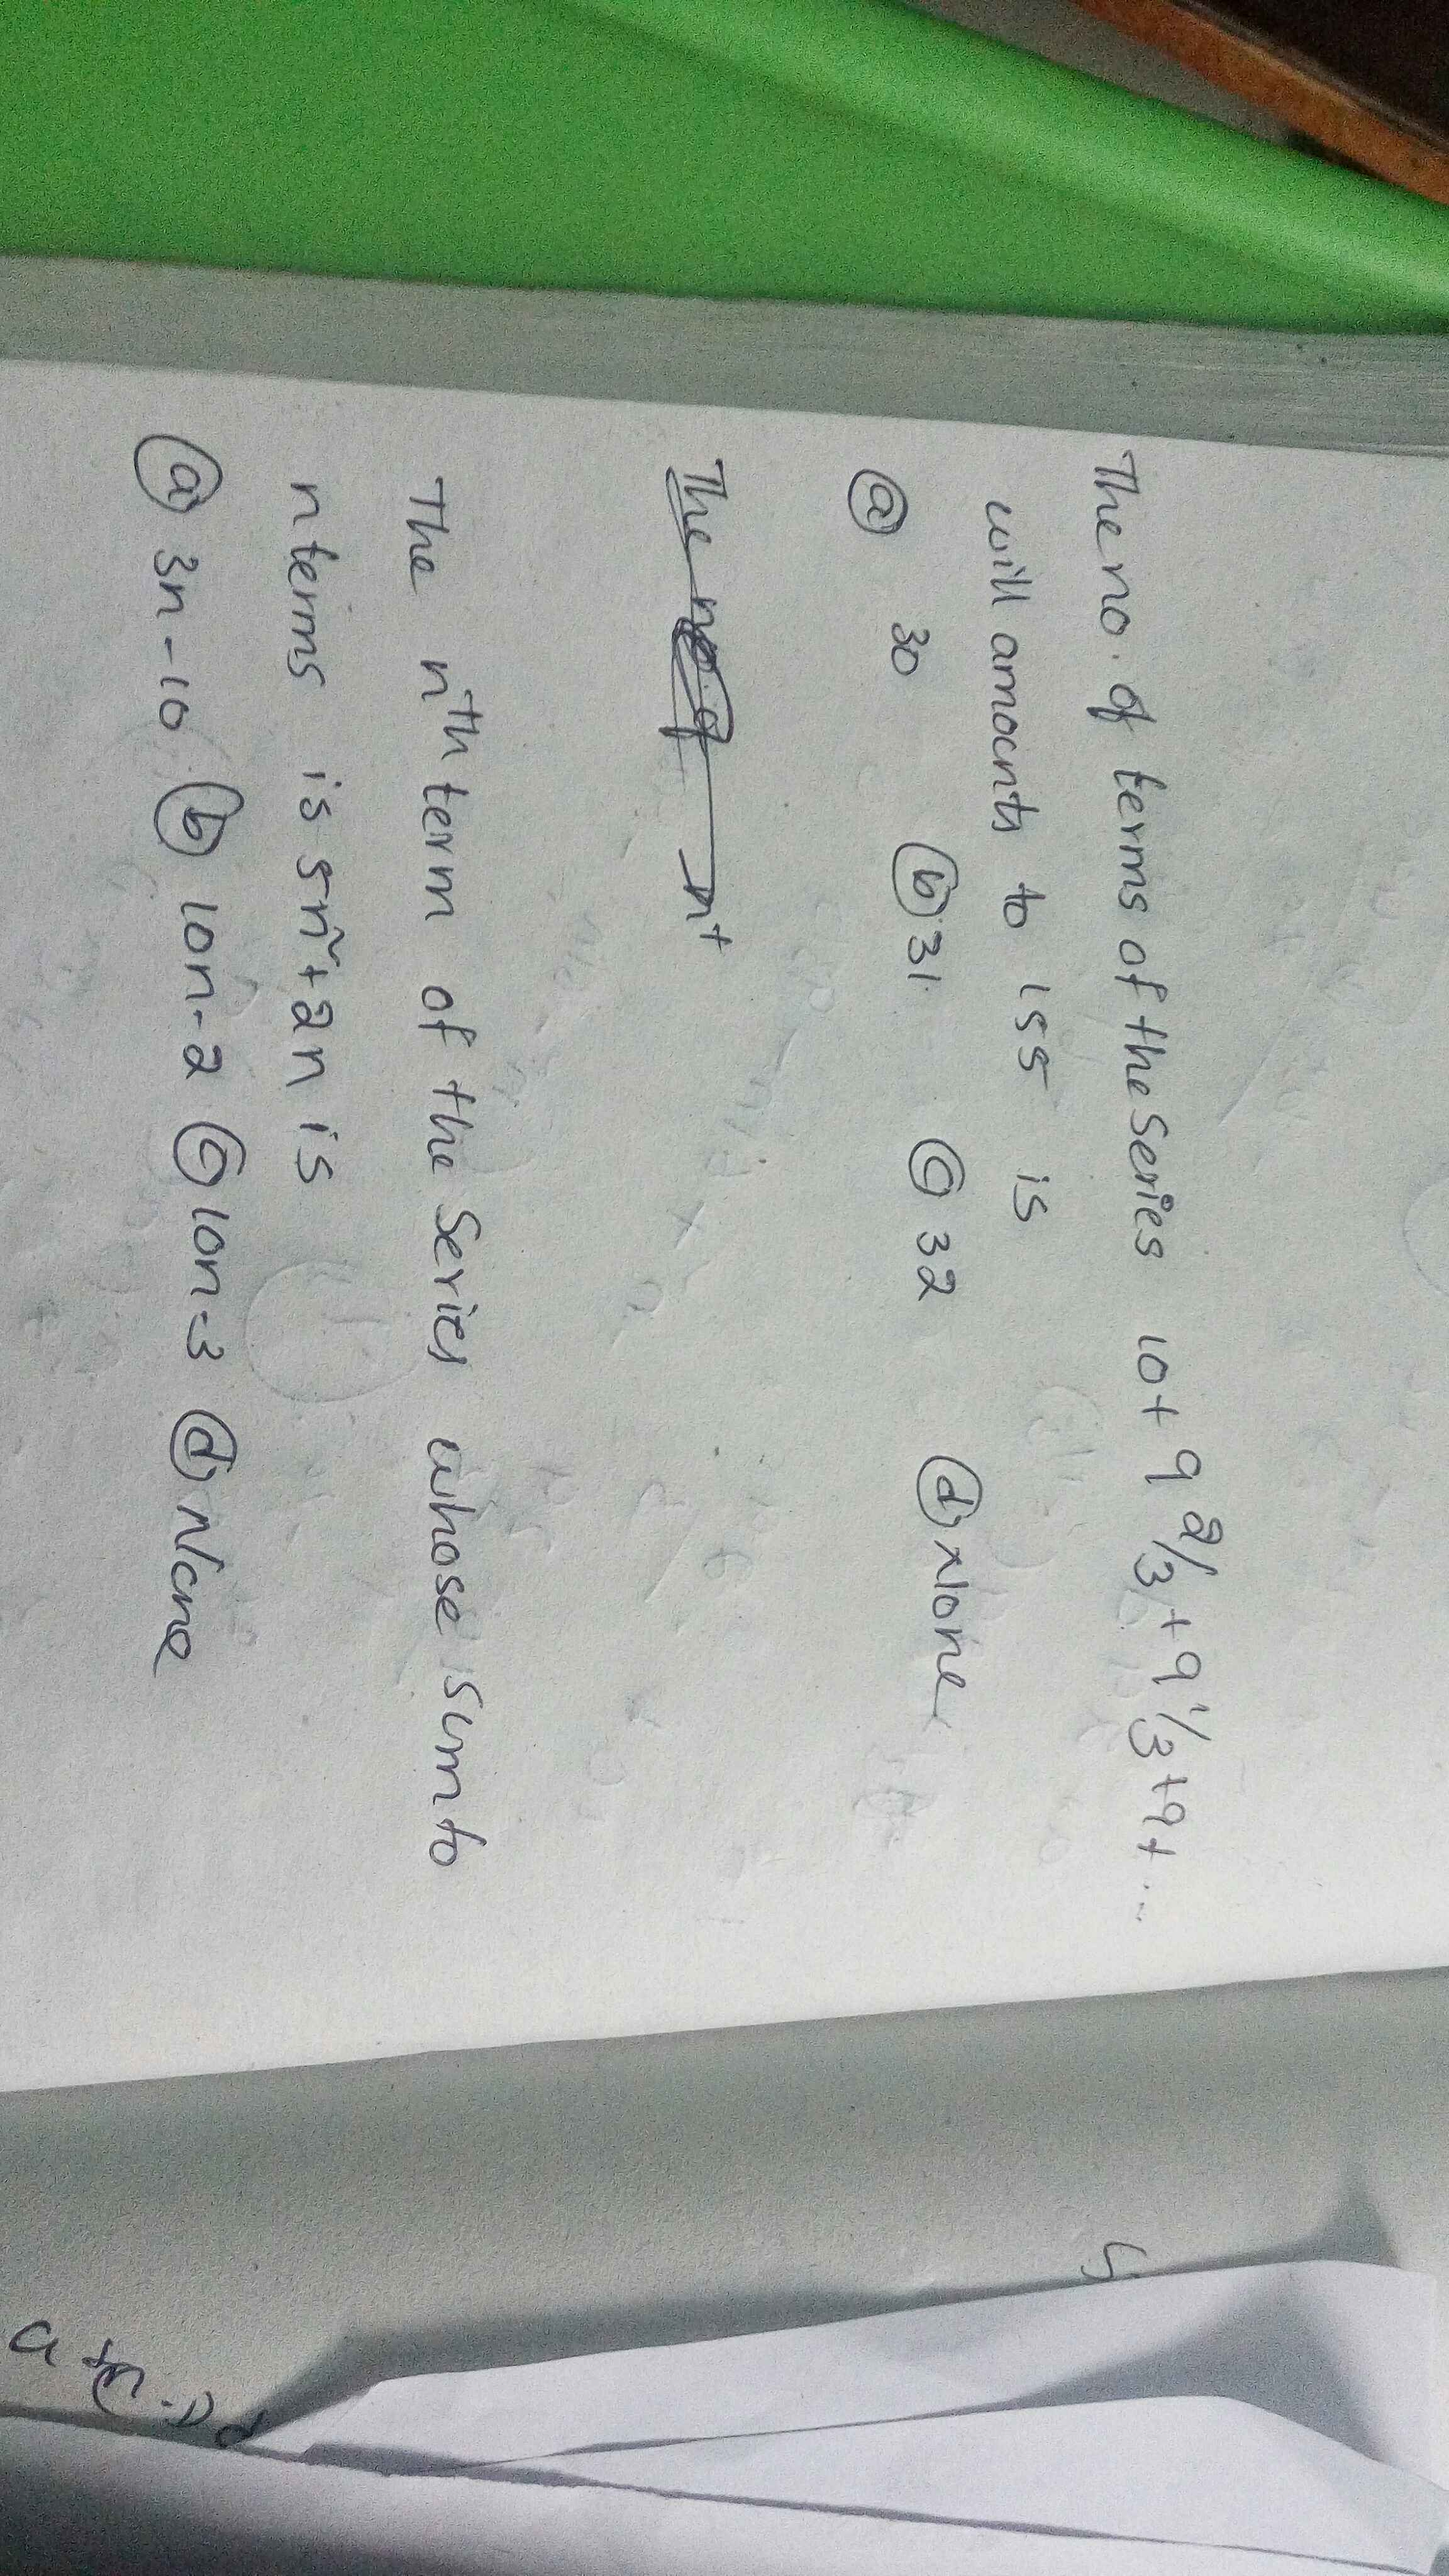 The no. of terms of the series 10+ 9 2/3 + 9 1/3 +9+ ...
will amounts to 155 is
ⓐ 30 ⓑ 31 ⓒ 32 ⓓ None
The no of n+
The nth term of the Series whose sum to
n terms is 5n²+2n is
ⓐ 3n-10 ⓑ 10n-2 ⓒ 10n-3 ⓓ None